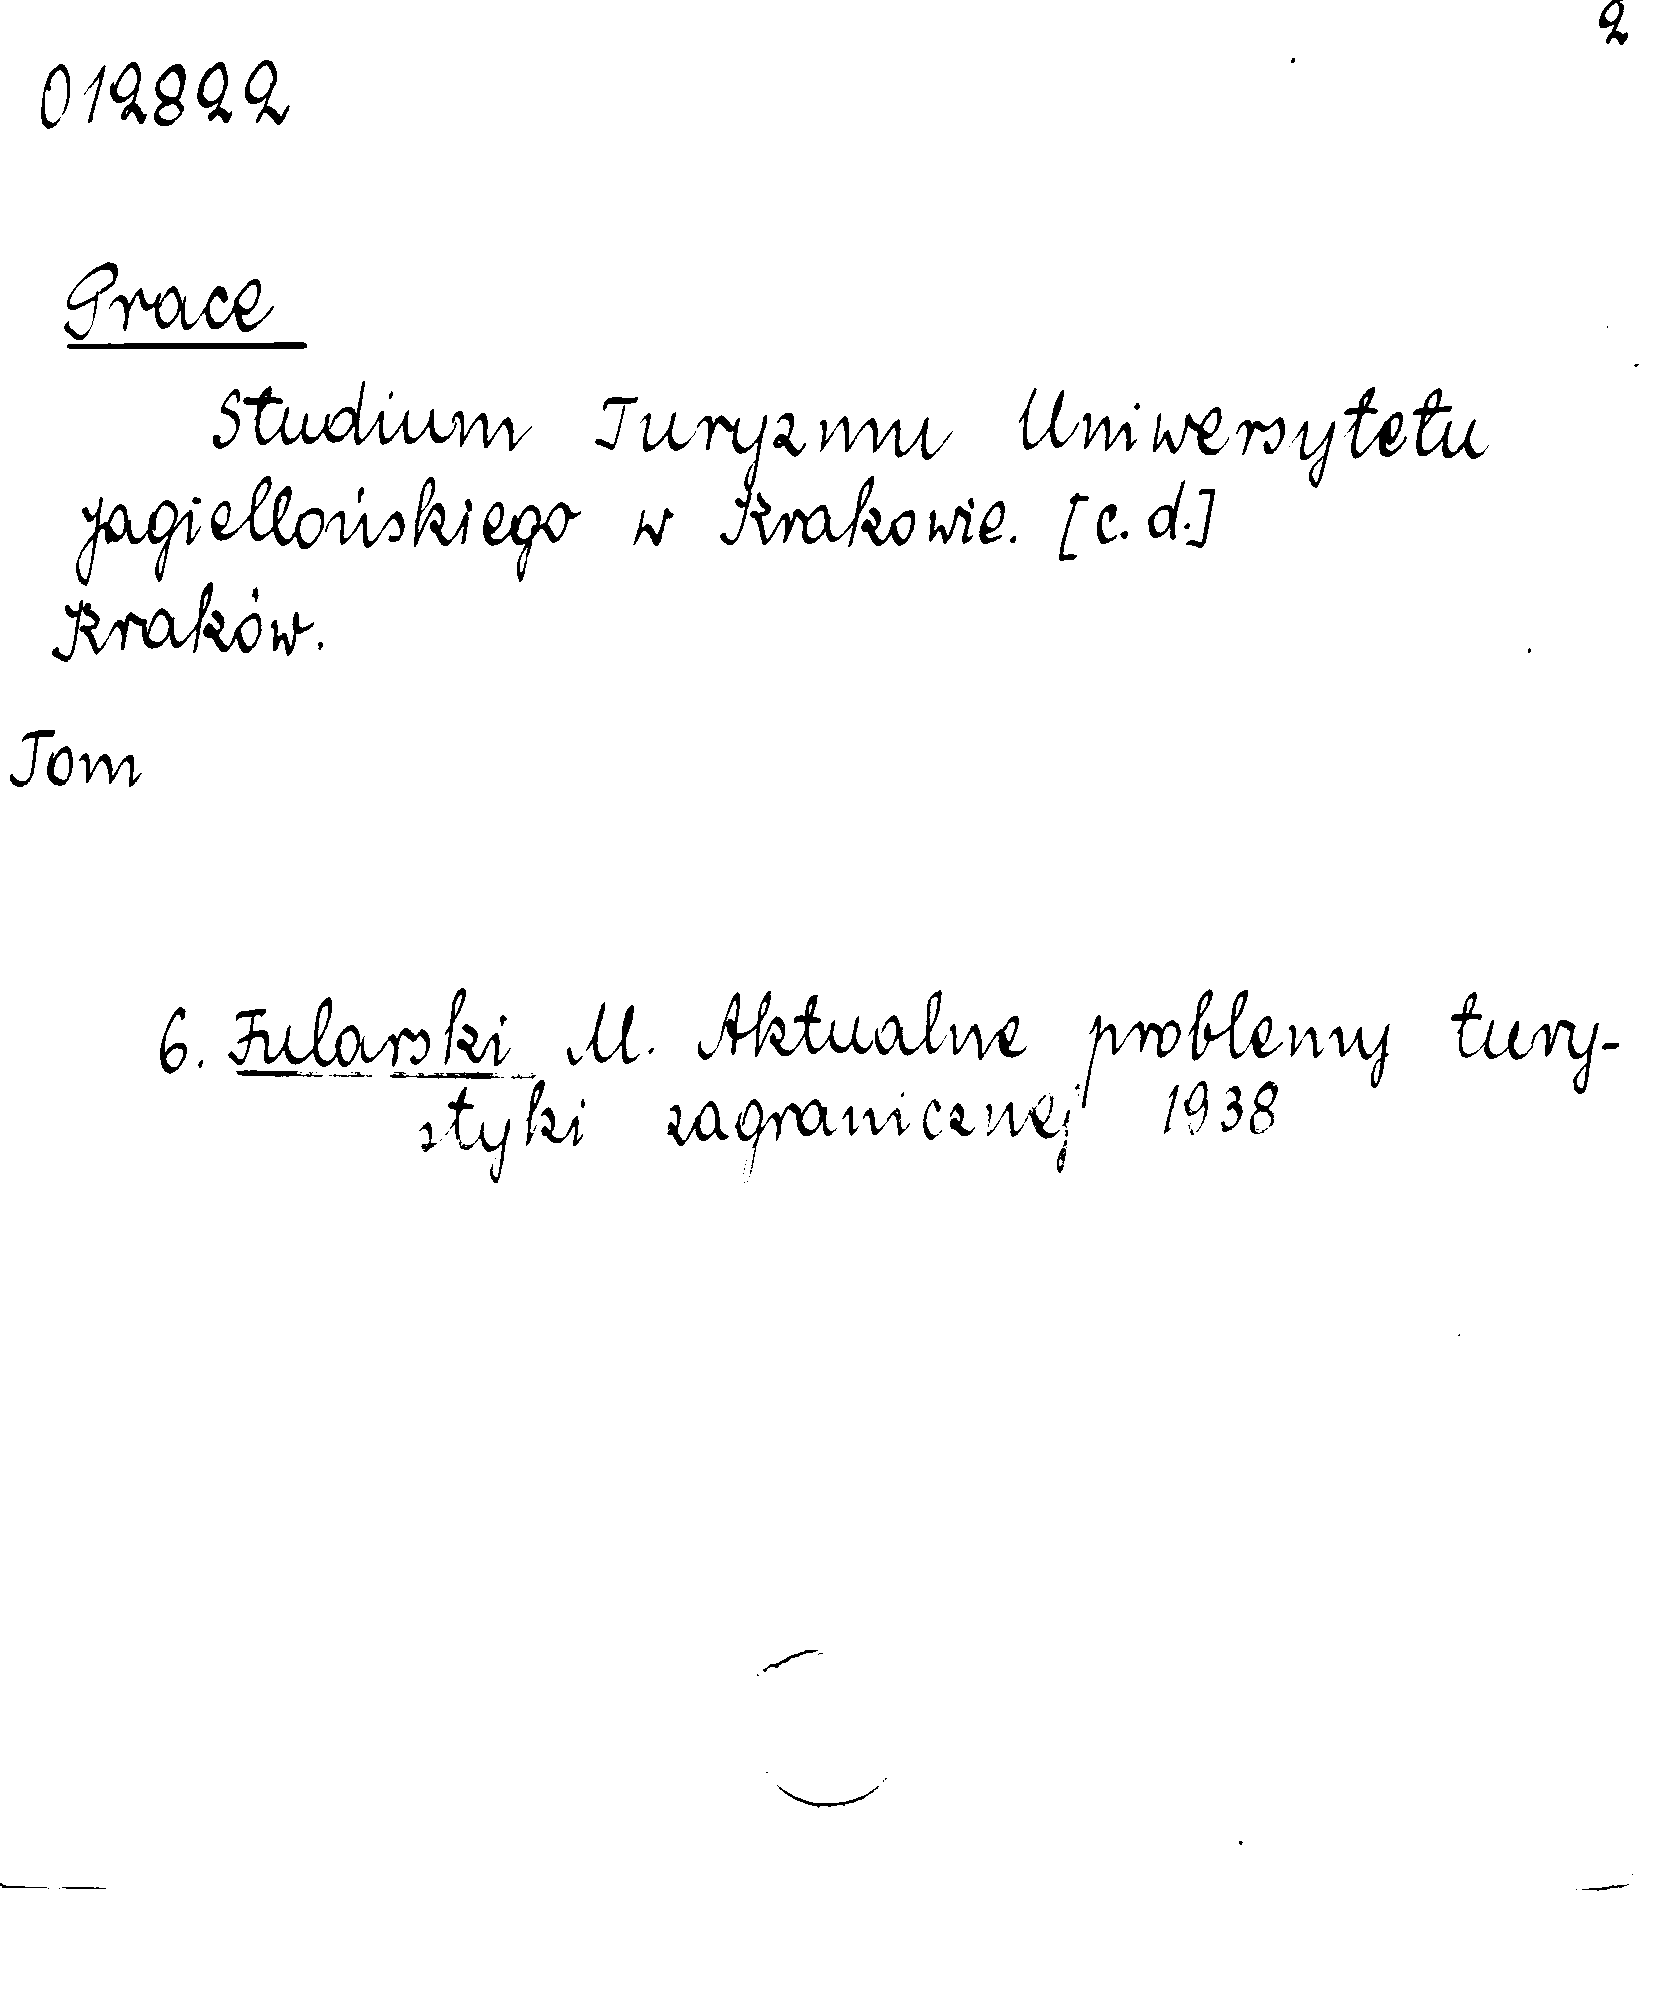 2
012822
Prace
Studium Turyzmu Uniwersytetu
Jagiellońskiego w Krakowie. [c.d.]
Kraków.
Tom
6. Fularski M. Aktualne problemy tury-
styki zagranicznej 1938